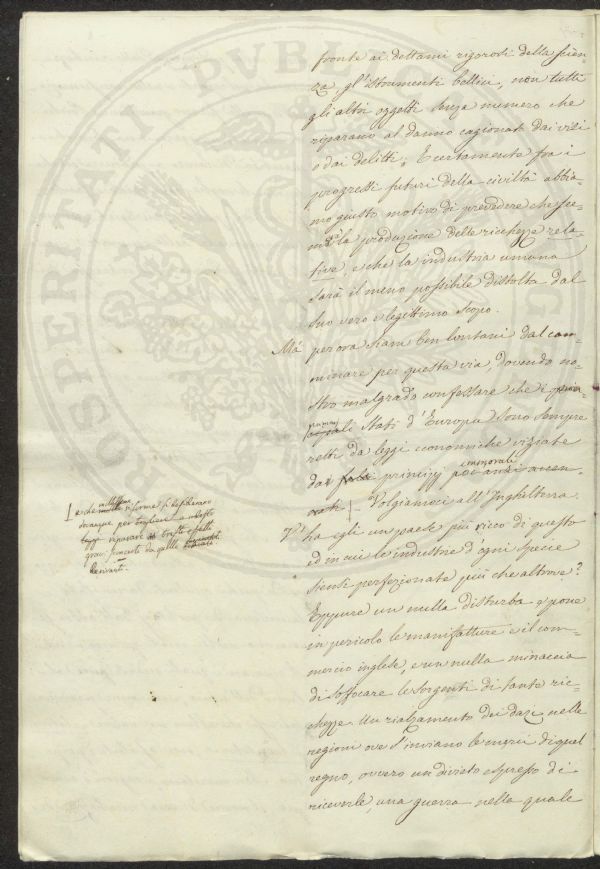 fronte ai dettami rigorosi della scien-
za, gl'Istrumenti bellici, non tutti
gli altri oggetti senza numero che
riparano al danno cagionato dai vizi
o dai delitti. E certamente fra i
progressi futuri della civiltà abbia-
mo giusto motivo di prevedere che sce-
merà la produzione delle ricchezze rela-
tive, e che la industria umana
sarà il meno possibile distolta dal
suo vero e legittimo scopo.
Ma per ora siam ben lontani dal cam-
minare per questa via, dovendo no-
stro malgrado confessare che i
primi Stati d'Europa sono sempre
retti da leggi economiche viziate
da principj immorali
Volgiamoci all'Inghilterra.
V'ha egli un paese più ricco di questo
ed in cui le industrie d'ogni specie
siensi perfezionate più che altrove?
Eppure un nulla disturba e pone
in pericolo le manifatture e il com-
mercio inglese, e un nulla minaccia
di soffocare le sorgenti di tante ric-
chezze. Un rialzamento dei dazi nelle
regioni ove s'inviano le merci di quel
regno, ovvero un divieto espresso di
riceverle, una guerra nella quale
e che riforme si desiderano
dovunque per togliere
riparare
gravi quelle
derivanti.
PVBLIC